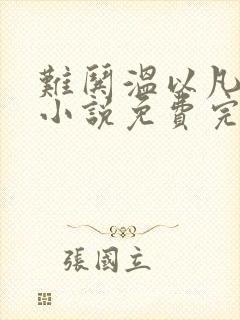 難鬨溫以凡
小說免費完
張國立